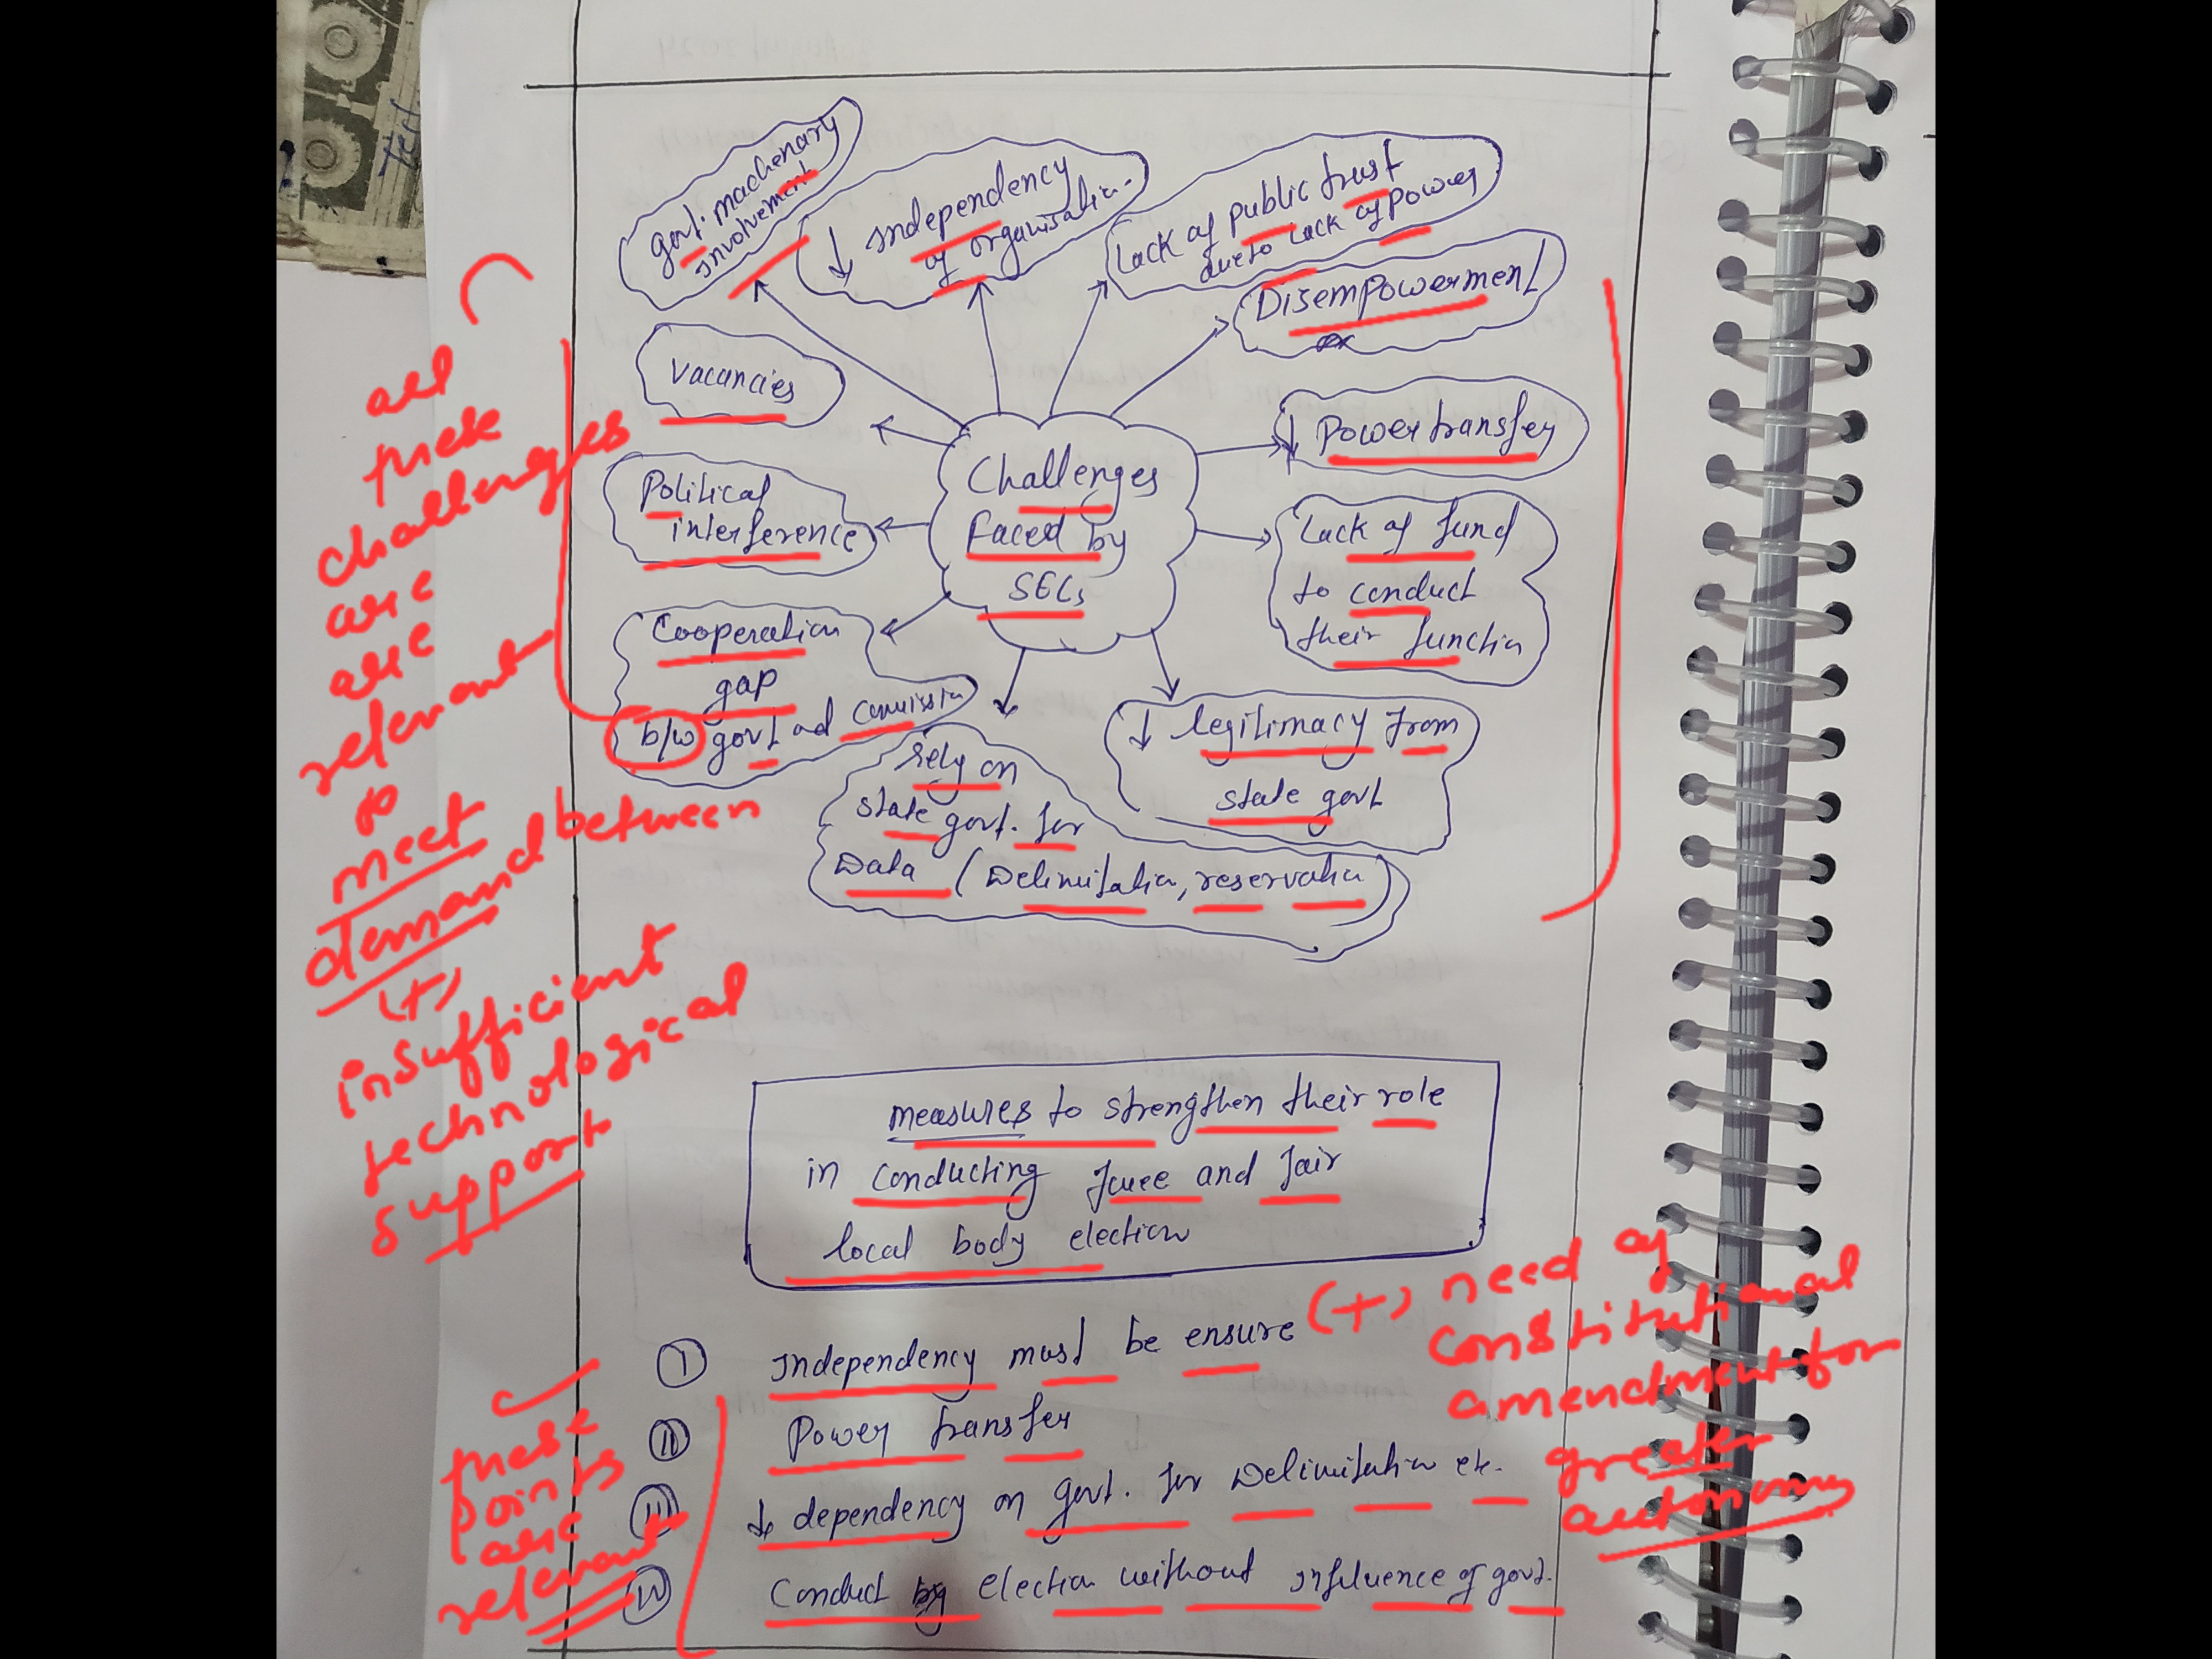 govt. machenary
involvement
↓ independency
of organisation.
Lack of public trust
due to lack of power
Disempowerment
vacancies
↓ Power transfer
Political
interference
Challenges
Faced by
SECs
Lack of fund
to conduct
their function
Cooperation
gap
b/w govt ad commission
↓ legitimacy from
state govt
rely on
state govt. for
Data (Delimitation, reservation)
all
these
challenges
are
are
relevant
to
meet
demand between
(+)
insufficient
technological
support
measures to strengthen their role
in conducting free and fair
local body election
(+) need of
constitutional
amendment for
greater
autonomy
I Independency must be ensure
II Power transfer
III ↓ dependency on govt. for Delimitation etc.
IV Conduct election without influence of govt.
these
points
are
relevant